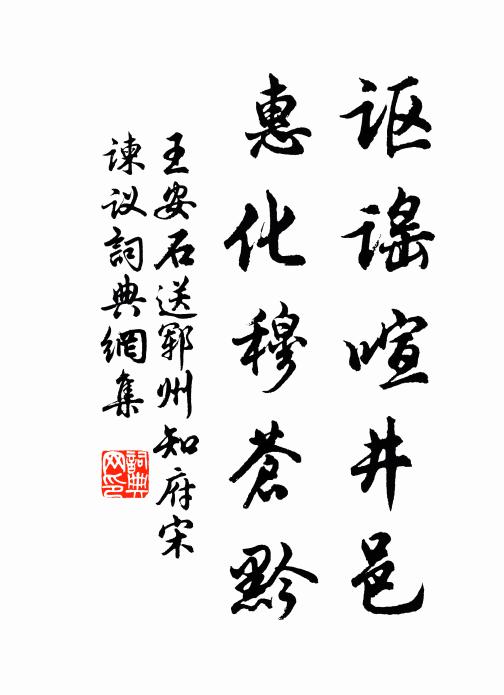 讴謡喧井邑
惠化穆苍黔
王安石送郓州知府宋
谏议詞典網集
詞典网印